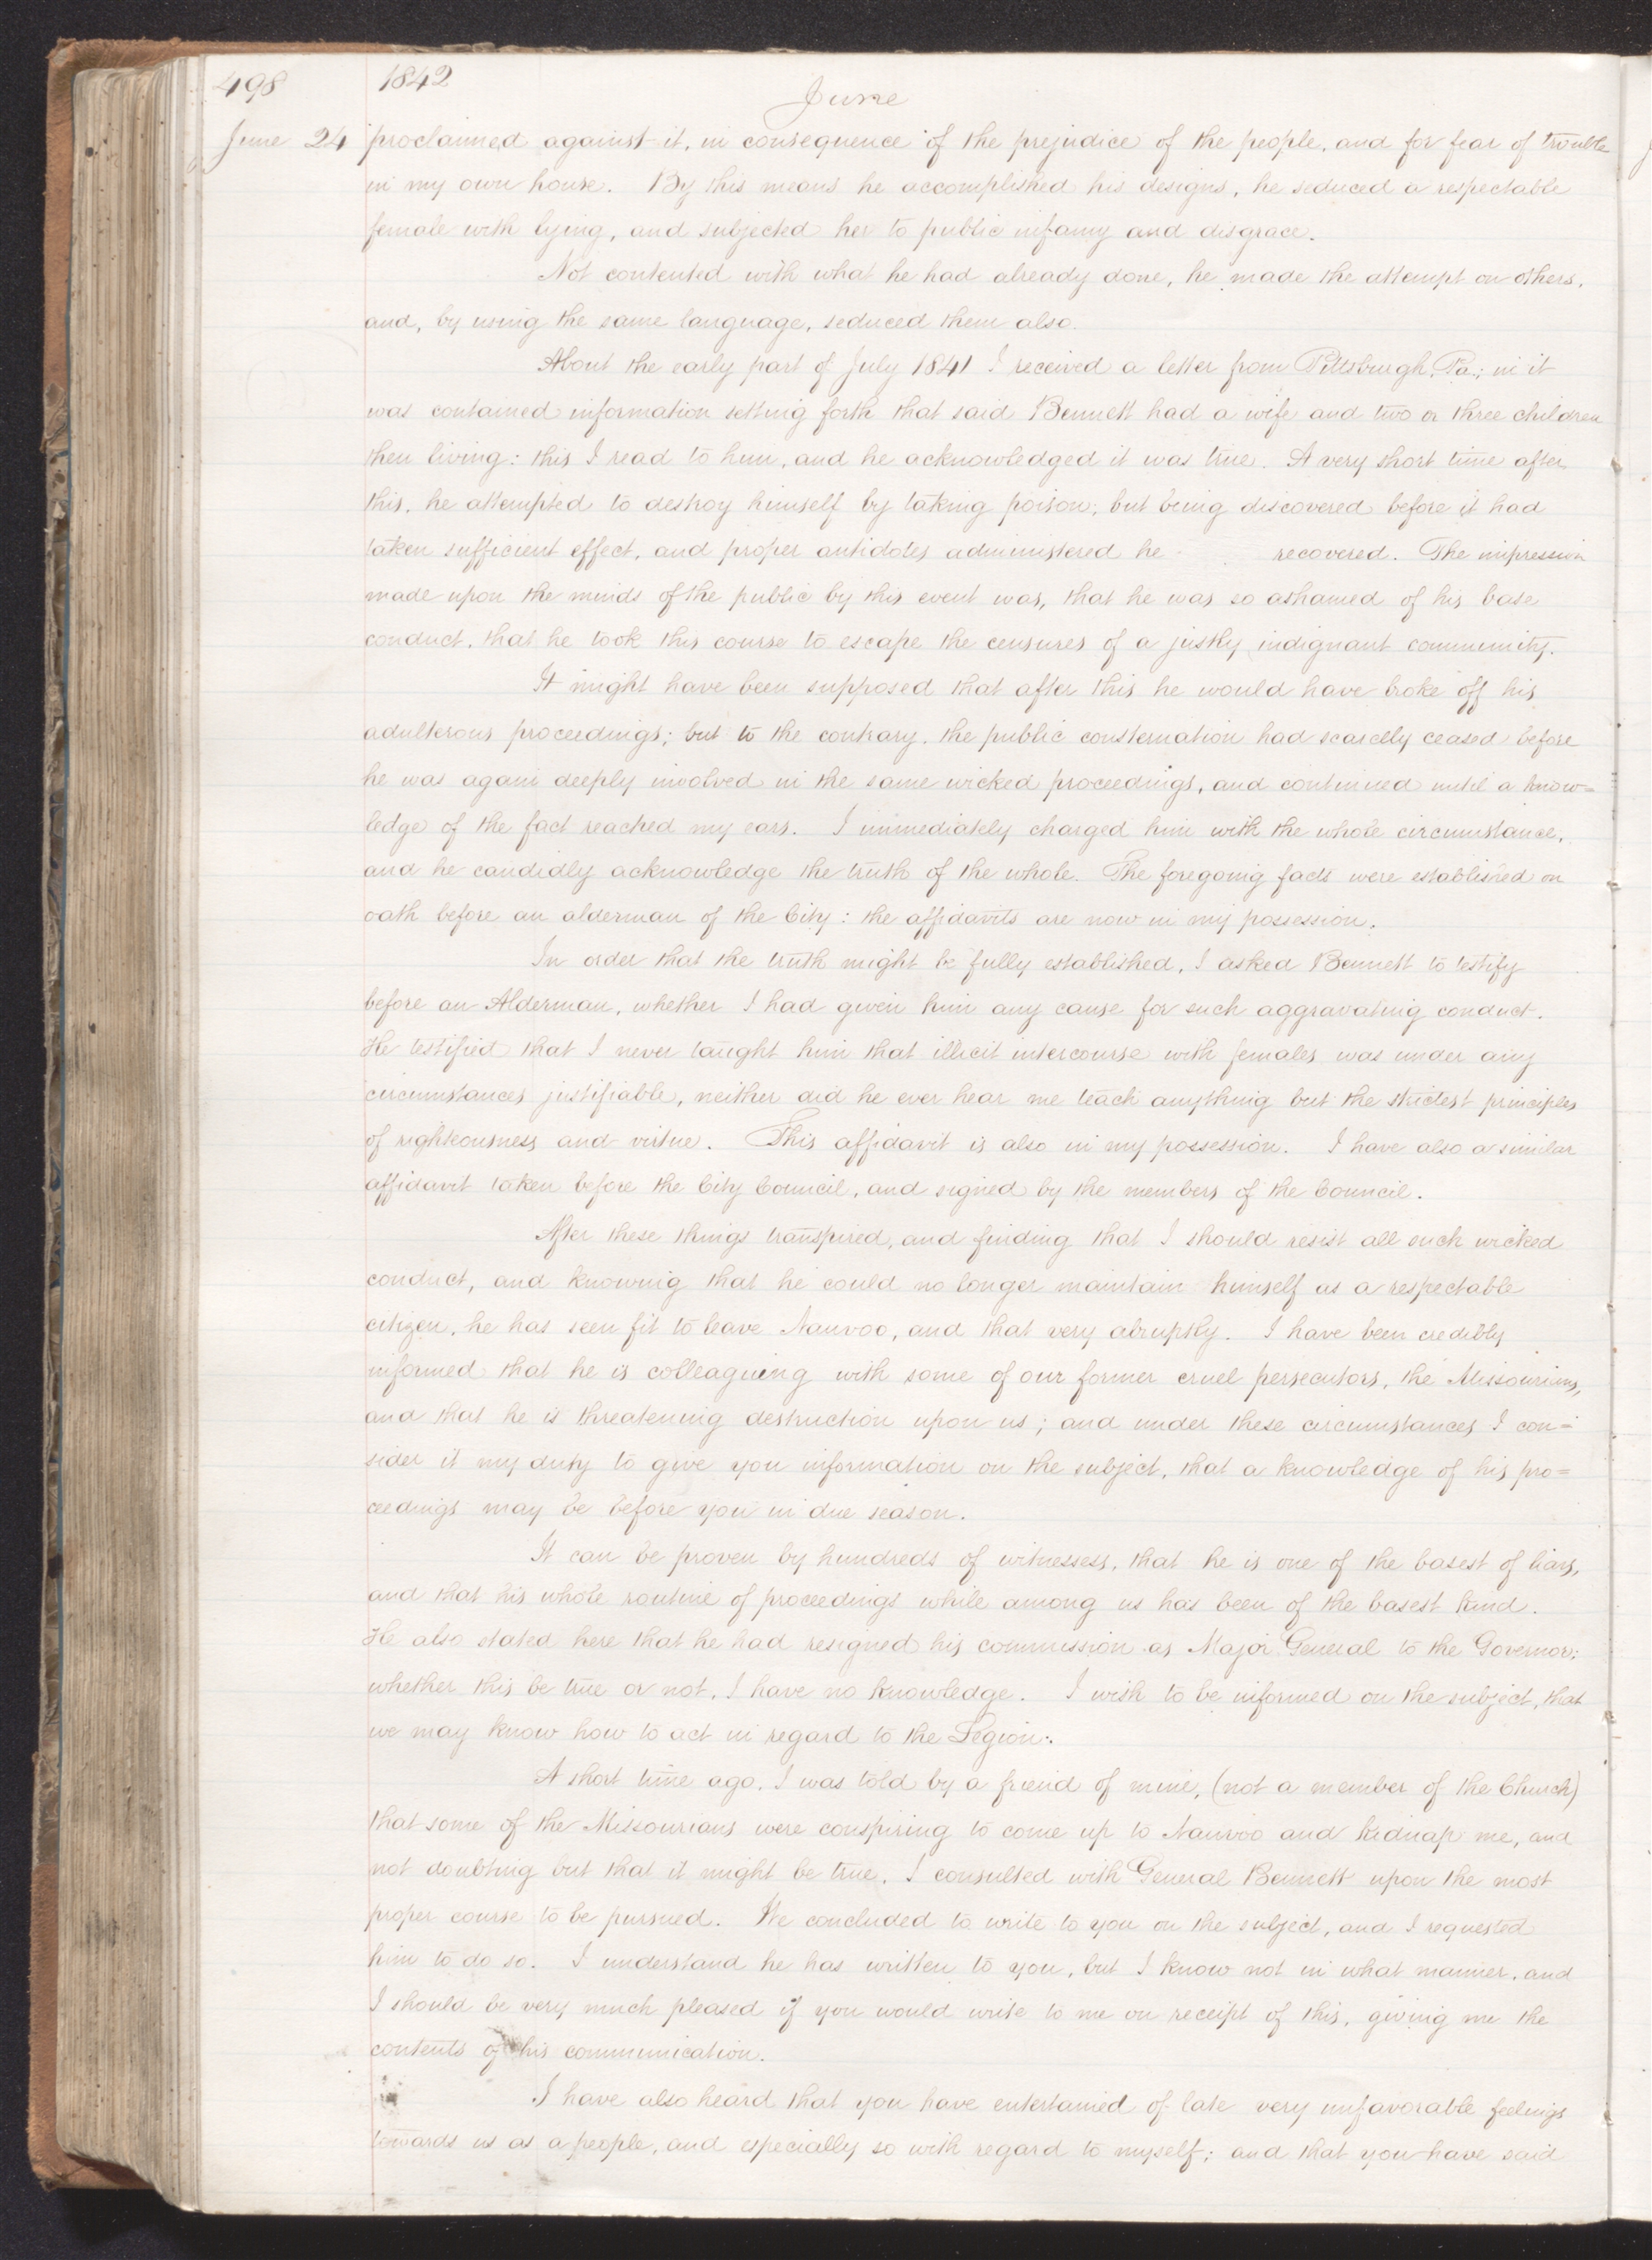 498 1842
June
June 24 proclaimed against it, in consequence of the prejudice of the people, and for fear of trouble
in my own house. By this means he accomplished his designs, he seduced a respectable
female with lying, and subjected her to public infamy and disgrace.
Not contented with what he had already done, he made the attempt on others,
and, by using the same language, seduced them also.
About the early part of July 1841 I received a letter from Pittsburgh, Pa.; in it
was contained information setting forth that said Bennett had a wife and two or three children
then living: this I read to him, and he acknowledged it was true. A very short time after
this, he attempted to destroy himself by taking poison; but being discovered before it had
taken sufficient effect, and proper antidotes administered he recovered. The impression
made upon the minds of the public by this event was, that he was so ashamed of his base
conduct, that he took this course to escape the censures of a justly indignant community.
It might have been supposed that after this he would have broke off his
adulterous proceedings; but to the contrary, the public consternation had scarcely ceased before
he was again deeply involved in the same wicked proceedings, and continued until a know=
ledge of the fact reached my ears. I immediately charged him with the whole circumstance,
and he candidly acknowledge the truth of the whole. The foregoing facts were established on
oath before an alderman of the City: the affidavits are now in my possession.
In order that the truth might be fully established, I asked Bennett to testify
before an Alderman, whether I had given him any cause for such aggravating conduct.
He testified that I never taught him that illicit intercourse with females was under any
circumstances justifiable, neither did he ever hear me teach anything but the strictest principles
of righteousness and virtue. This affidavit is also in my possession. I have also a similar
affidavit taken before the City Council, and signed by the members of the Council.
After these things transpired, and finding that I should resist all such wicked
conduct, and knowing that he could no longer maintain himself as a respectable
citizen, he has seen fit to leave Nauvoo, and that very abruptly. I have been credibly
informed that he is colleagueing with some of our former cruel persecutors, the Missourians,
and that he is threatening destruction upon us; and under these circumstances I con=
sider it my duty to give you information on the subject, that a knowledge of his pro=
ceedings may be before you in due season.
It can be proven by hundreds of witnessess, that he is one of the basest of liars,
and that his whole routine of proceedings while among us has been of the basest kind.
He also stated here that he had resigned his commission as Major General to the Governor;
whether this be true or not, I have no knowledge. I wish to be informed on the subject, that
we may know how to act in regard to the Legion.
A short time ago, I was told by a friend of mine, (not a member of the Church)
that some of the Missourians were conspiring to come up to Nauvoo and kidnap me, and
not doubting but that it might be true, I consulted with General Bennett upon the most
proper course to be pursued. We concluded to write to you on the subject, and I requested
him to do so. I understand he has written to you, but I know not in what manner, and
I should be very much pleased if you would write to me on receipt of this, giving me the
contents of his communication.
I have also heard that you have entertained of late very unfavorable feelings
towards us as a people, and especially so with regard to myself; and that you have said